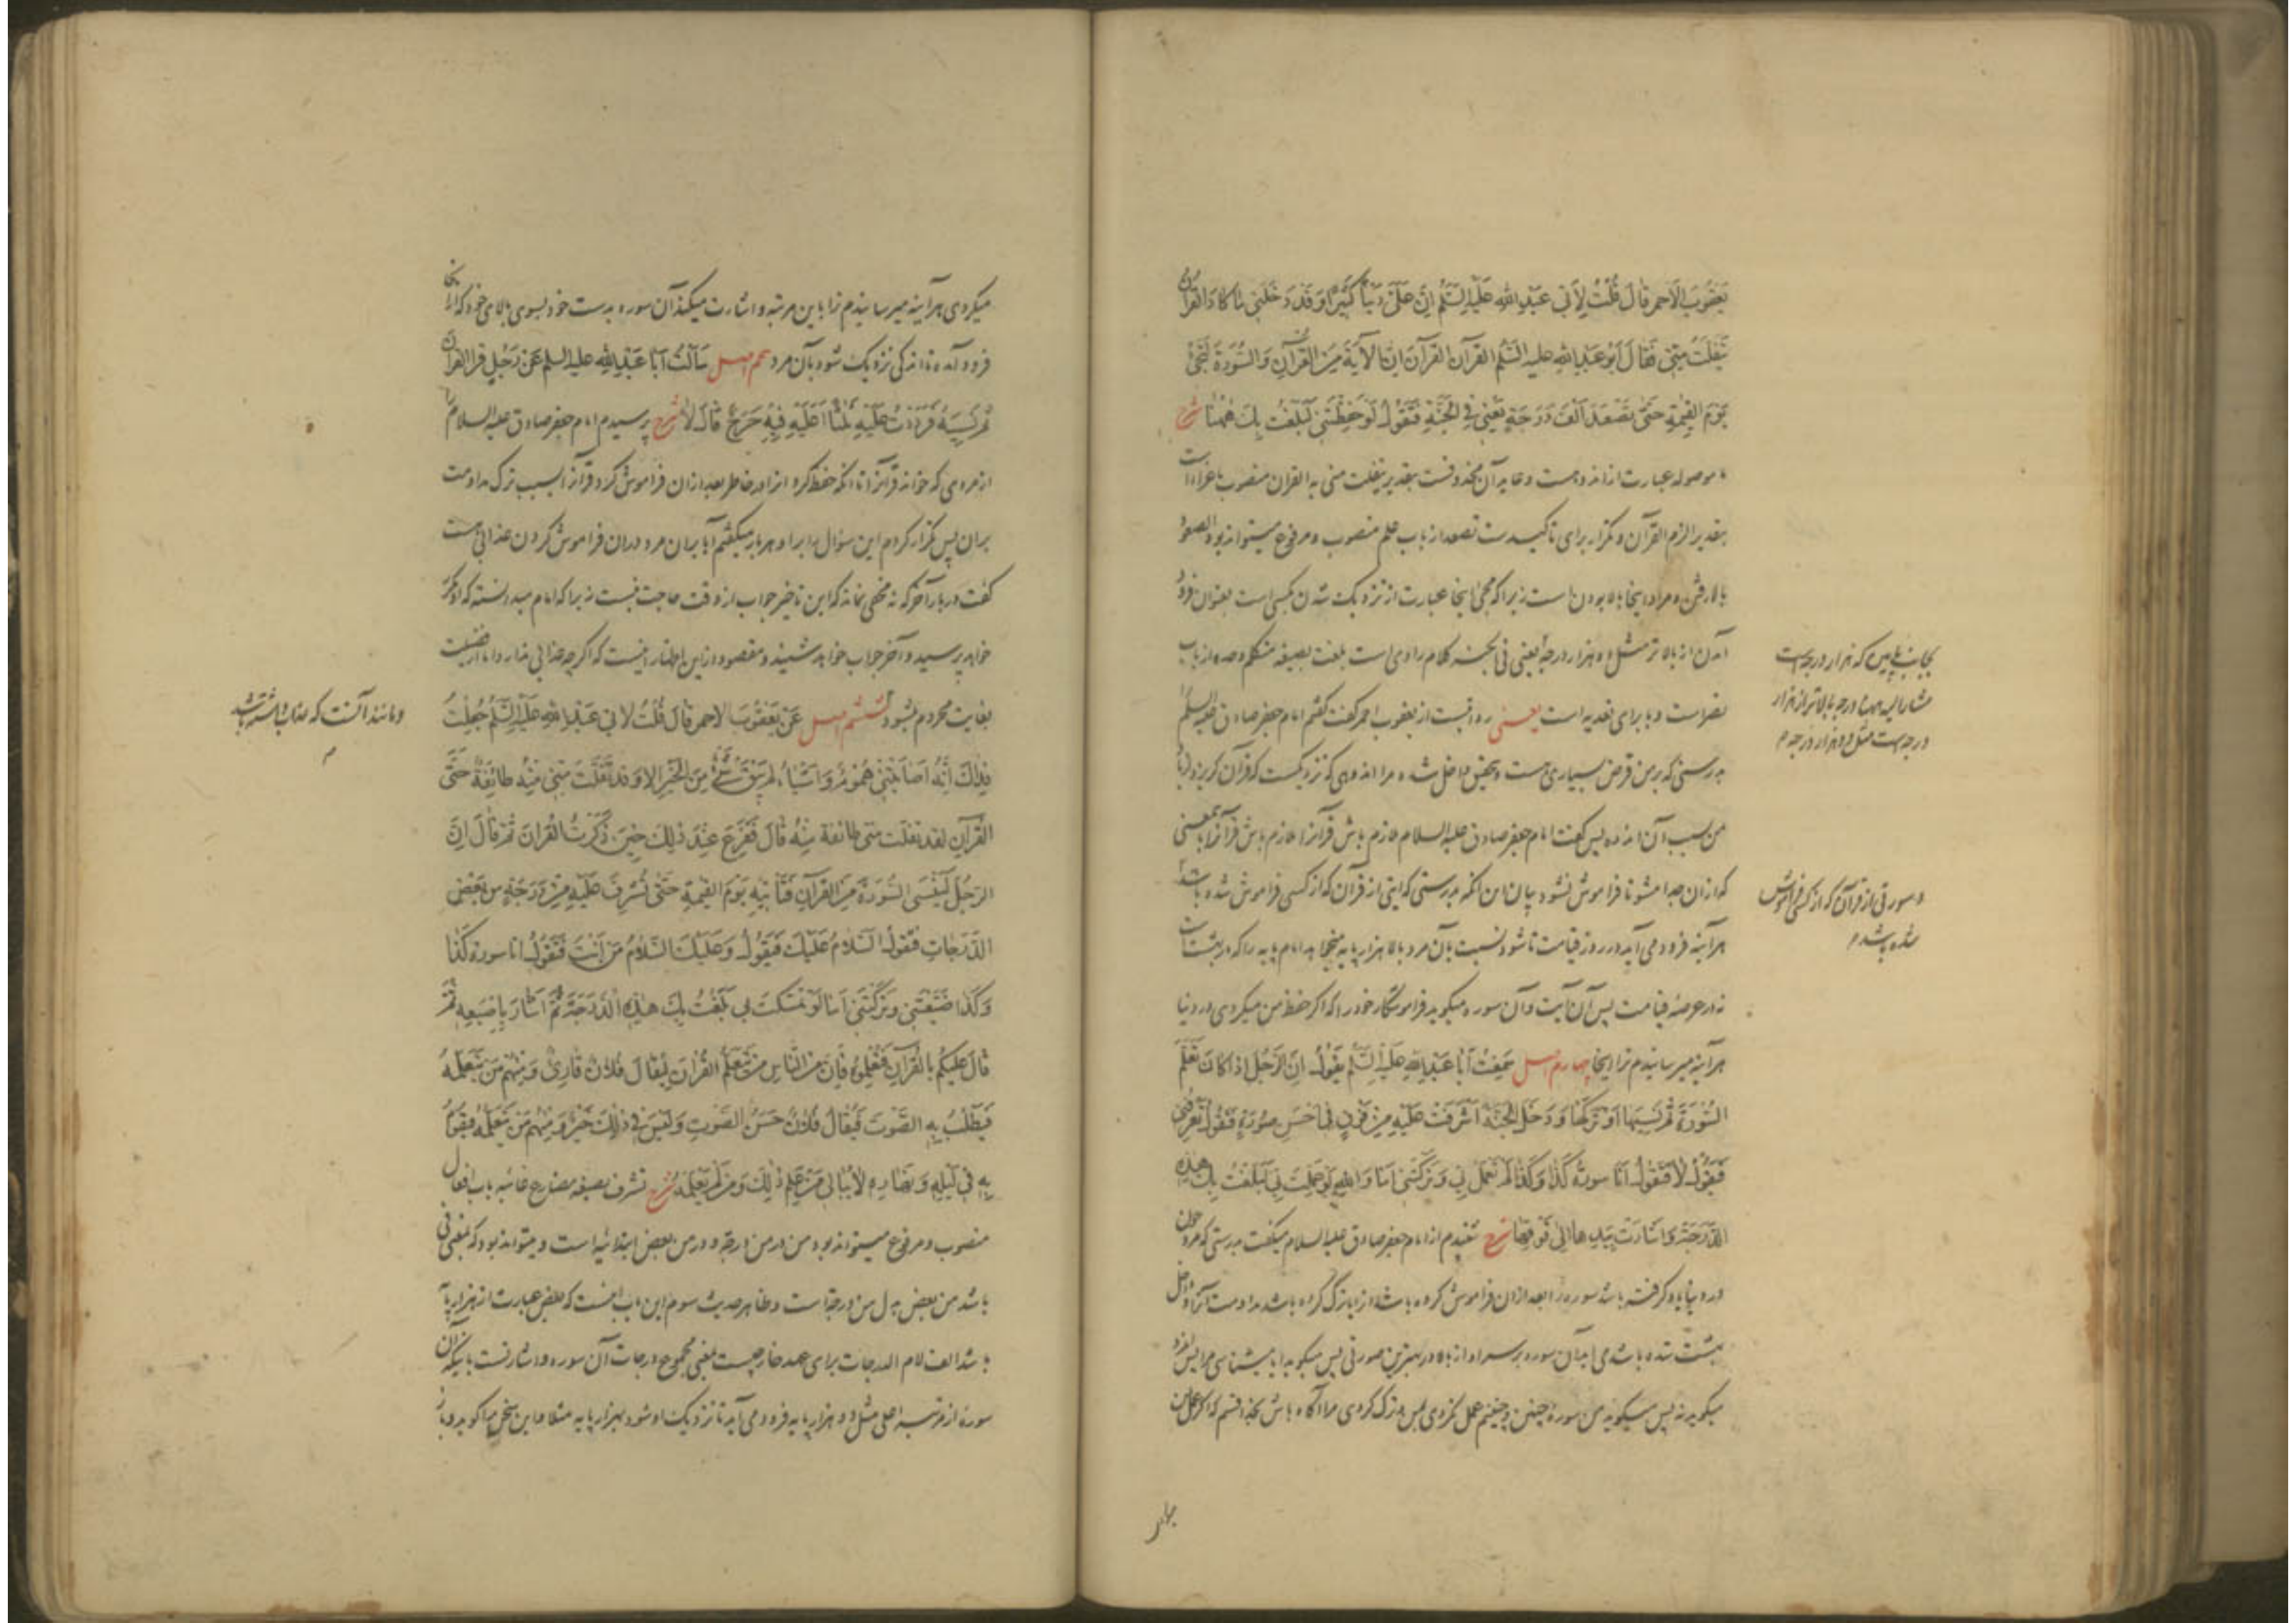 یَعْقُوبَ الْاَحمر قالَ قُلْتُ لِاَبی عَبْدِ اللّٰهِ عَلَیْهِ السَّلٰم اِنَّ عَلَیَّ دَیْنًا کَثیرًا وَقَدْ دَخَلَنِی مٰا کادَ القُرْآنُ
یَتَفَلَّتُ مِنّی فَقالَ اَبُو عَبْدِ اللّٰهِ علیه السَّلٰم القرآنَ القُرآنَ اِنَّ الْآیَةَ مِنَ القُرْآنِ وَالسُّورَةَ لَتَجِیءُ
یَوْمَ القِیٰمَةِ حَتّٰی تَصْعَدَ اَلْفَ دَرَجَةٍ یَعْنِی فِی الْجَنَّةِ فَتَقُولُ لَوْ حَفِظْتَنِی لَبَلَغْتُ بِكَ هٰهُنٰا شرح
ما موصوله عبارت از اندوهست و عاید آن محذوفست بتقدیر یتفلت منی به القرآن منصوب باغراء است
بتقدیر الزم القرآن و تکرار برای تاکیدست تصعد از باب علم منصوب و مرفوع میتواند بود الصعود
بالا رفتن و مراد اینجا بالا بودن است زیرا که مجیء اینجا عبارت از نزدیک شدن بکسی است بعنوان فرود
آمدن از بالاتر مثل ده هزار درجه یعنی فی الجنه کلام راوی است بلغت بصیغه متکلم وحده از باب
نصر است و با برای تعدیه است یعنی روایتست از یعقوب احمر گفت گفتم امام جعفر صادق علیه السلٰم
بدرستی که بر من قرض بسیاری هست و بتحقیق داخل شده مرا اندوهی که نزدیکست که قرآن گریزد از
من بسبب آن اندوه پس گفت امام جعفر صادق علیه السلام ملازم باش قرآن را ملازم باش قرآن را بمعنی
که از آن جدا مشو تا فراموش نشود بیان این آنکه بدرستی که آیتی از قرآن که از کسی فراموش شده باشد
هر آینه فرود می آید در روز قیامت تا شود نسبت بآن مرد بالا هزار پایه میخواهد امام پایه را که در بهشت است
نه در عرصهٔ قیامت پس آن آیت و آن سوره میگوید فراموشکار خود را که اگر حفظ من میکردی در دنیا
هر آینه میرسانیدم ترا اینجا چهارم اصل سَمِعْتُ اَبَا عَبْدِ اللّٰهِ عَلَیْهِ السَّلٰم یَقُولُ اِنَّ الرَّجُلَ اِذا کانَ تَعَلَّمَ
السُّورَةَ ثُمَّ نَسِیَهَا اَوْ تَرَکَهَا وَ دَخَلَ الْجَنَّةَ اَشْرَفَتْ عَلَیْهِ مِنْ فَوْقٍ فی اَحْسَنِ صُورَةٍ فَتَقُولُ تَعْرِفُنی
فَیَقُولُ لاٰ فَتَقُولُ اَنَا سورةُ کَذٰا وَ کَذٰا لَمْ تَعْمَلْ بی وَ تَرَکْتَنی اَمٰا وَ اللّٰهِ لَوْ عَمِلْتَ بی لَبَلَغْتُ بِكَ هٰذِهِ
الدَّرَجَةَ وَ اَشٰارَتْ بِیَدِهٰا اِلیٰ فَوْقِهٰا شرح شنیدم از امام جعفر صادق علیه السلام میگفت بدرستی که مرد چون
در دنیا یاد گرفته باشد سوره را بعد از آن فراموش کرده باشد آنرا یا ترک کرده باشد مداومت آنرا و داخل
بهشت شده باشد می آید آن سوره بر سر او از بالا در بهترین صورتی پس میگوید آیا میشناسی مرا پس مرد
میگوید نه پس میگوید من سورهٔ چنین و چنینم عمل نکردی بمن و ترک کردی مرا آگاه باش بخدا قسم که اگر عمل بمن
بجانب پایین که هزار درجه است
مشار الیه ههنا درجه بالاتر از هزار
درجه است مثل ده هزار درجه م
و سورتی از قرآن که از کسی فراموش
شده باشد م
میکردی هر آینه میرسانیدم ترا باین مرتبه و اشارت میکند آن سوره بدست خود بسوی بالای خود که از آنجا
فرود آمده تا اندکی نزدیک شود بآن مرد پنجم اصل سَأَلْتُ اَبا عَبْدِ اللّٰهِ علیه السلم عَنْ رَجُلٍ قَرَأَ القرآنَ
ثُمَّ نَسِیَهُ فَرَدَدْتُ عَلَیْهِ ثَلٰثًا اَعَلَیْهِ فیهِ حَرَجٌ قالَ لاٰ شرح پرسیدم امام جعفر صادق علیه السلام را
از مردی که خواند قرآن را تا آنکه حفظ کرد آنرا در خاطر بعد از آن فراموش کرد قرآن را بسبب ترک مداومت
بر آن پس تکرار کردم این سؤال را بر او هر بار میگفتم آیا بر آن مرد در آن فراموش کردن عذابی هست
گفت در بار آخر که نه مخفی نماند که این تاخیر جواب از وقت حاجت نیست زیرا که امام میدانسته که او مکرر
خواهد پرسید و آخر جواب خواهد شنید و مقصود از این اظهار اینست که اگر چه عذابی ندارد اما از فضیلت
بغایت محروم میشود ششم اصل عَنْ یَعْقُوبَ الاحمر قالَ قُلْتُ لابی عَبْدِ اللّٰهِ عَلَیْهِ السَّلٰم جُعِلْتُ
فِداكَ اِنَّهُ اَصٰابَتْنی هُمُومٌ وَ اَشْیٰاءُ لَمْ یَبْقَ شَیْءٌ مِنَ الْخَیْرِ اِلاّ وَ قَدْ تَفَلَّتَ مِنّی مِنْهُ طائِفَةٌ حَتّٰی
القُرآنِ لقد تفلّت منّی طائفة مِنْهُ قالَ فَفَزِعَ عِنْدَ ذٰلِكَ حینَ ذَکَرْتُ القُرْانَ ثُمَّ قالَ اِنَّ
الرَّجُلَ لَیَنْسَی السُّورَةَ مِنَ القُرآنِ فَتَأْتیهِ یَوْمَ القیٰمةِ حَتّٰی تُشْرِفَ عَلَیْهِ مِنْ دَرَجَةٍ مِنْ بَعْضِ
الدَّرَجٰاتِ فَتَقُولُ السَّلاٰمُ عَلَیْكَ فَیَقُولُ وَ عَلَیْكَ السَّلاٰمُ مَنْ اَنْتَ فَتَقُولُ اَنَا سورة کَذٰا
وَ کَذٰا ضَیَّعْتَنی وَ تَرَکْتَنی اَمٰا لَوْ تَمَسَّکْتَ بی بَلَغْتُ بِكَ هٰذِهِ الدَّرَجَةَ ثُمَّ اَشٰارَ بِاِصْبَعِهِ ثُمَّ
قالَ عَلَیْکُمْ بِالقُرآنِ فَتَعَلَّمُوهُ فَاِنَّ مِنَ النّٰاسِ مَنْ تَعَلَّمَ القُرْآنَ لِیُقالَ فُلاٰنٌ قٰارِئٌ وَ مِنْهُمْ مَنْ یَتَعَلَّمُهُ
فَیَطْلُبُ بِهِ الصَّوْتَ فَیُقالُ فُلاٰنٌ حَسَنُ الصَّوْتِ وَ لَیْسَ فی ذٰلِكَ خَیْرٌ وَ مِنْهُمْ مَنْ یَتَعَلَّمُهُ فَیَقُومُ
بِهِ فی لَیْلِهِ وَ نَهٰارِهِ لاٰ یُبٰالی مَنْ عَلِمَ ذٰلِكَ وَ مَنْ لَمْ یَعْلَمْهُ شرح تشرف بصیغهٔ مضارع غائبه باب افعال
منصوب و مرفوع میتواند بود من در من درجة و در من بعض ابتدائیه است و میتواند بود که بمعنی فی
باشد من بعض بدل من درجة است و ظاهر حدیث سوم این باب اینست که بعض عبارت از هزار پایه
باشد الف لام الدرجات برای عهد خارجیست بمعنی مجموع درجات آن سوره و اشارتست باینکه آن
سوره از مرتبه اعلی مثل ده هزار پایه فرود می آید تا نزدیک او شود بهزار پایه مثلا و این سخن را گوید و باز
و مانند آنست که عذاب داشته باشد
م